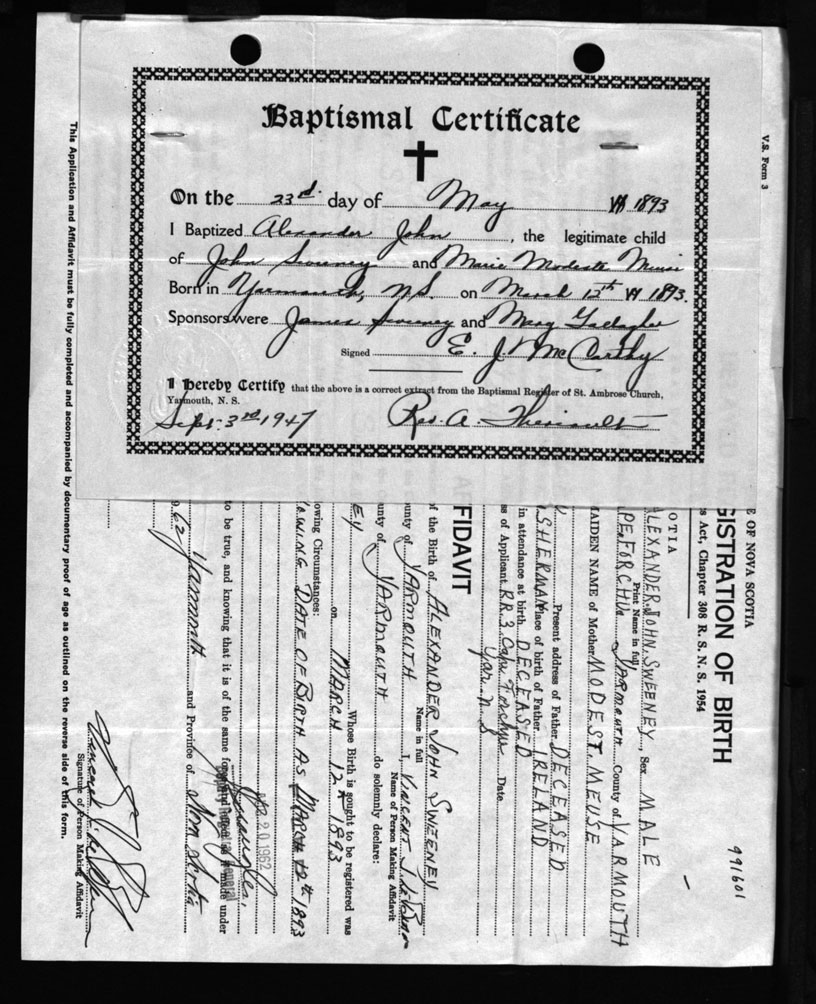 Baptismal Certificate
On the 23rd day of May 1893
I Baptized Alexander John, the legitimate child
of John Sweeney and Marie Modeste Meuse
Born in Yarmouth, N.S. on March 12th 1893.
Sponsors were James Sweeney and Mary Gallagher
Signed E. J. McCarthy
I Hereby Certify that the above is a correct extract from the Baptismal Register of St. Ambrose Church,
Yarmouth, N. S.
Sept. 3rd 1947 Rev. A. Theriault
V.S. Form 3
991601
E OF NOVA SCOTIA
GISTRATION OF BIRTH
s Act, Chapter 308 R. S. N. S. 1954
OTIA
LEXANDER JOHN SWEENEY, Sex MALE
Print Name in full
PE FORCHU YARMOUTH County of YARMOUTH
MAIDEN NAME of Mother MODEST MEUSE
Present address of Father DECEASED
SHERMAN Place of birth of Father IRELAND
in attendance at birth DECEASED
ss of Applicant RR 3 Cape Forchu Date
Yar. N.S
FIDAVIT
f the Birth of ALEXANDER JOHN SWEENEY
Name in full
ounty of YARMOUTH I, VINCENT J
Name of Person Making Affidavit
unty of YARMOUTH do solemnly declare:
EY Whose Birth is sought to be registered was
on MARCH 12th 1893
lowing Circumstances:
OWING DATE OF BIRTH AS MARCH 12th 1893
20 1962
to be true, and knowing that it is of the same force and effect as if made under
62 Yarmouth and Province of Nova Scotia
Signature of Person Making Affidavit
This Application and Affidavit must be fully completed and accompanied by documentary proof of age as outlined on the reverse side of this form.